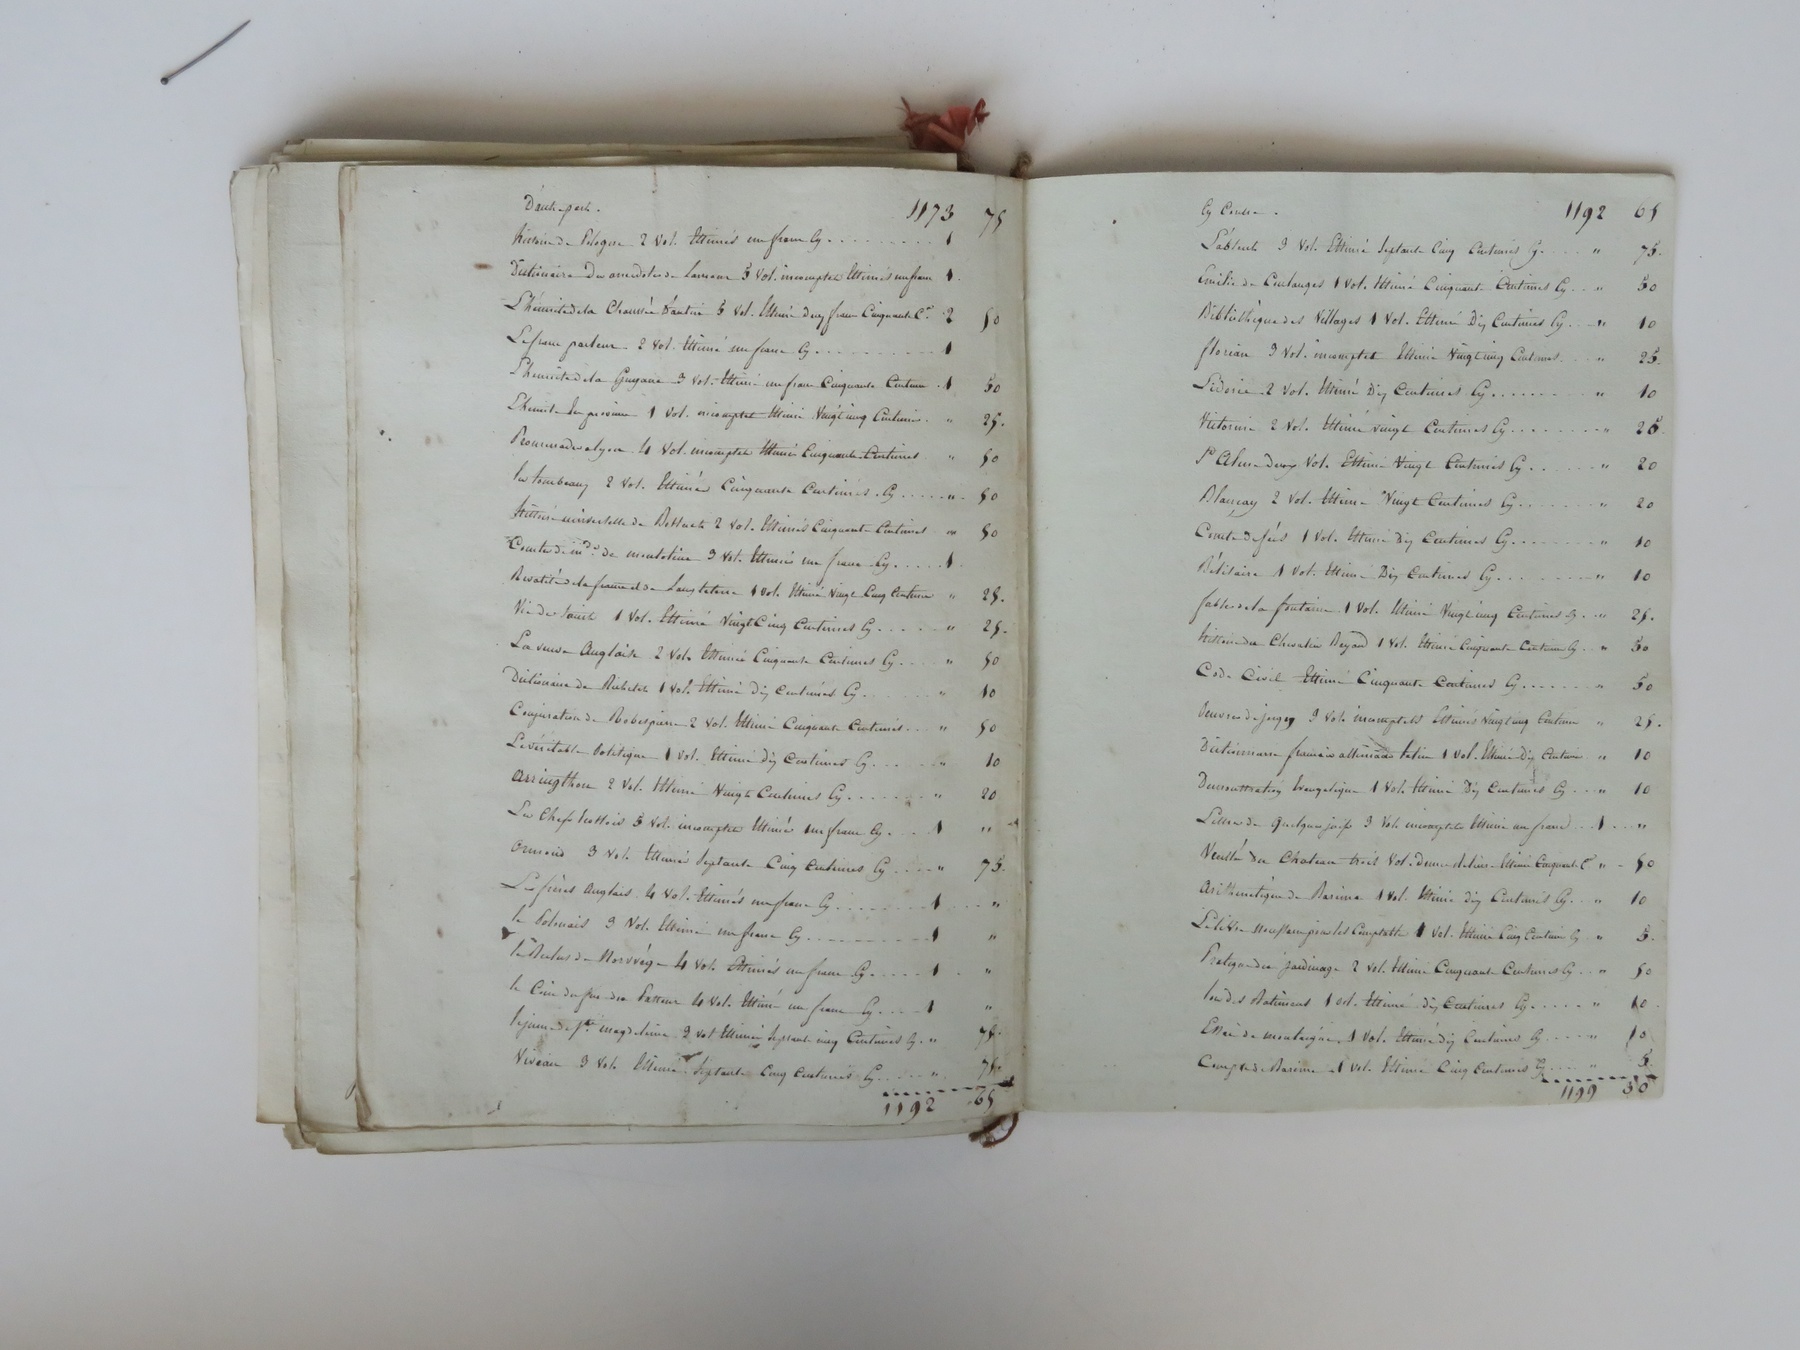 D'autre part. 1173 75
histoire de Pologne 2 Vol. Estimés un franc Cy 1
Dictionaire des anecdotes 5 Vol. incomptet Estimés un franc 1
L'hérmite de la Chaussée d'antin 5 Vol. Estimé deux franc Cinquante C.es 2 50
Le franc parleur 2 Vol. Estimé un franc Cy 1
L'hermite de la Guyane 3 Vol. Estimé un franc Cinquante Centime 1 50
L'hermite En province 1 Vol. incomptet Estimé Vingt cinq Centimes " 25.
Promenade a lyon 4 Vol. incomptet Estimé Cinquante Centimes " 50
les tombeaux 2 Vol. Estimés Cinquante Centimes Cy " 50
histoire universelle de Bossuet 2 Vol. Estimés Cinquante Centimes " 50
Conte de de 3 Vol. Estimés un franc Cy 1
Rivalité de la france et de L'angleterre 1 Vol. Estimé Vingt Cinq Centime " 25.
Vie de 1 Vol. Estimé Vingt Cinq Centimes Cy " 25.
La veuve Anglaise 2 Vol. Estimé Cinquante Centimes Cy " 50
Dictionaire de Richelet 1 Vol. Estimé dix Centimes Cy " 10
Conjuration de Robespierre 2 Vol. Estimé Cinquante Centimes " 50
Le véritable Politique 1 Vol. Estimé dix Centimes Cy " 10
Arringthon 2 Vol. Estimé Vingt Centimes Cy " 20
Les Chefs Ecossois 5 Vol. incomptet Estimé un franc Cy 1 "
Ormond 3 Vol. Estimé Septante Cinq Centimes Cy " 75.
Les frères Anglais 4 Vol. Estimés un franc Cy 1 "
le Polonais 3 Vol. Estimé un franc Cy 1 "
le de Norvége 4 Vol. Estimés un franc Cy 1 "
le Coin du feu du Pasteur 4 Vol. Estimé un franc Cy 1 "
de Ste magdeleine 3 Vol Estimé Septante cinq Centimes Cy " 75.
Vivian 3 Vol. Estimé Septante Cinq Centimes Cy " 75.
1192 65
Cy Contre. 1192 65
3 Vol. Estimé Septante Cinq Centimes Cy " 75.
Emilie de Coulanges 1 Vol. Estimé Cinquante Centimes Cy " 50
Bibliothèque des Villages 1 Vol. Estimé Dix Centimes Cy " 10
florian 3 Vol. incomptet Estimé Vingt cinq Centimes 25.
Lidorie 2 Vol. Estimé Dix Centimes Cy " 10
Victorine 2 Vol. Estimé vingt Centimes Cy " 25.
St Alme deux Vol. Estimé Vingt Centimes Cy " 20
Blançay 2 Vol. Estimé Vingt Centimes Cy " 20
Conte de fées 1 Vol. Estimé Dix Centimes Cy " 10
Bélisaire 1 Vol. Estimé Dix Centimes Cy " 10
fables de la fontaine 1 Vol. Estimé Vingt cinq Centimes Cy " 25.
histoire du Chevalier Bayard 1 Vol. Estimé Cinquante Centime Cy " 50
Code Civil Estimé Cinquante Centimes Cy " 50
Oeuvres de 3 Vol. incomptets Estimés Vingt cinq Centime " 25.
Dictionnaire francais allemand latin 1 Vol. Estimé Dix Centime " 10
Demonstration Evangelique 1 Vol. Estimé Dix Centimes Cy " 10
Lettres de quelques juifs 3 Vol. incomptets Estimé un franc 1 "
du Chateau trois Vol. Estimé Cinquante C.es " 50
Arithmetique de Barème 1 Vol. Estimé dix Centimes Cy " 10
1 Vol. Estimé Cinq Centime Cy " 5.
Pratique du jardinage 2 Vol. Estimé Cinquante Centimes Cy " 50
loi des Batiments 1 vol. Estimé dix Centimes Cy " 10
Essai de montaigne 1 Vol. Estimé dix Centimes Cy " 10
Compte de Barème 1 Vol. Estimé Cinq Centimes Cy " 5.
1199 50